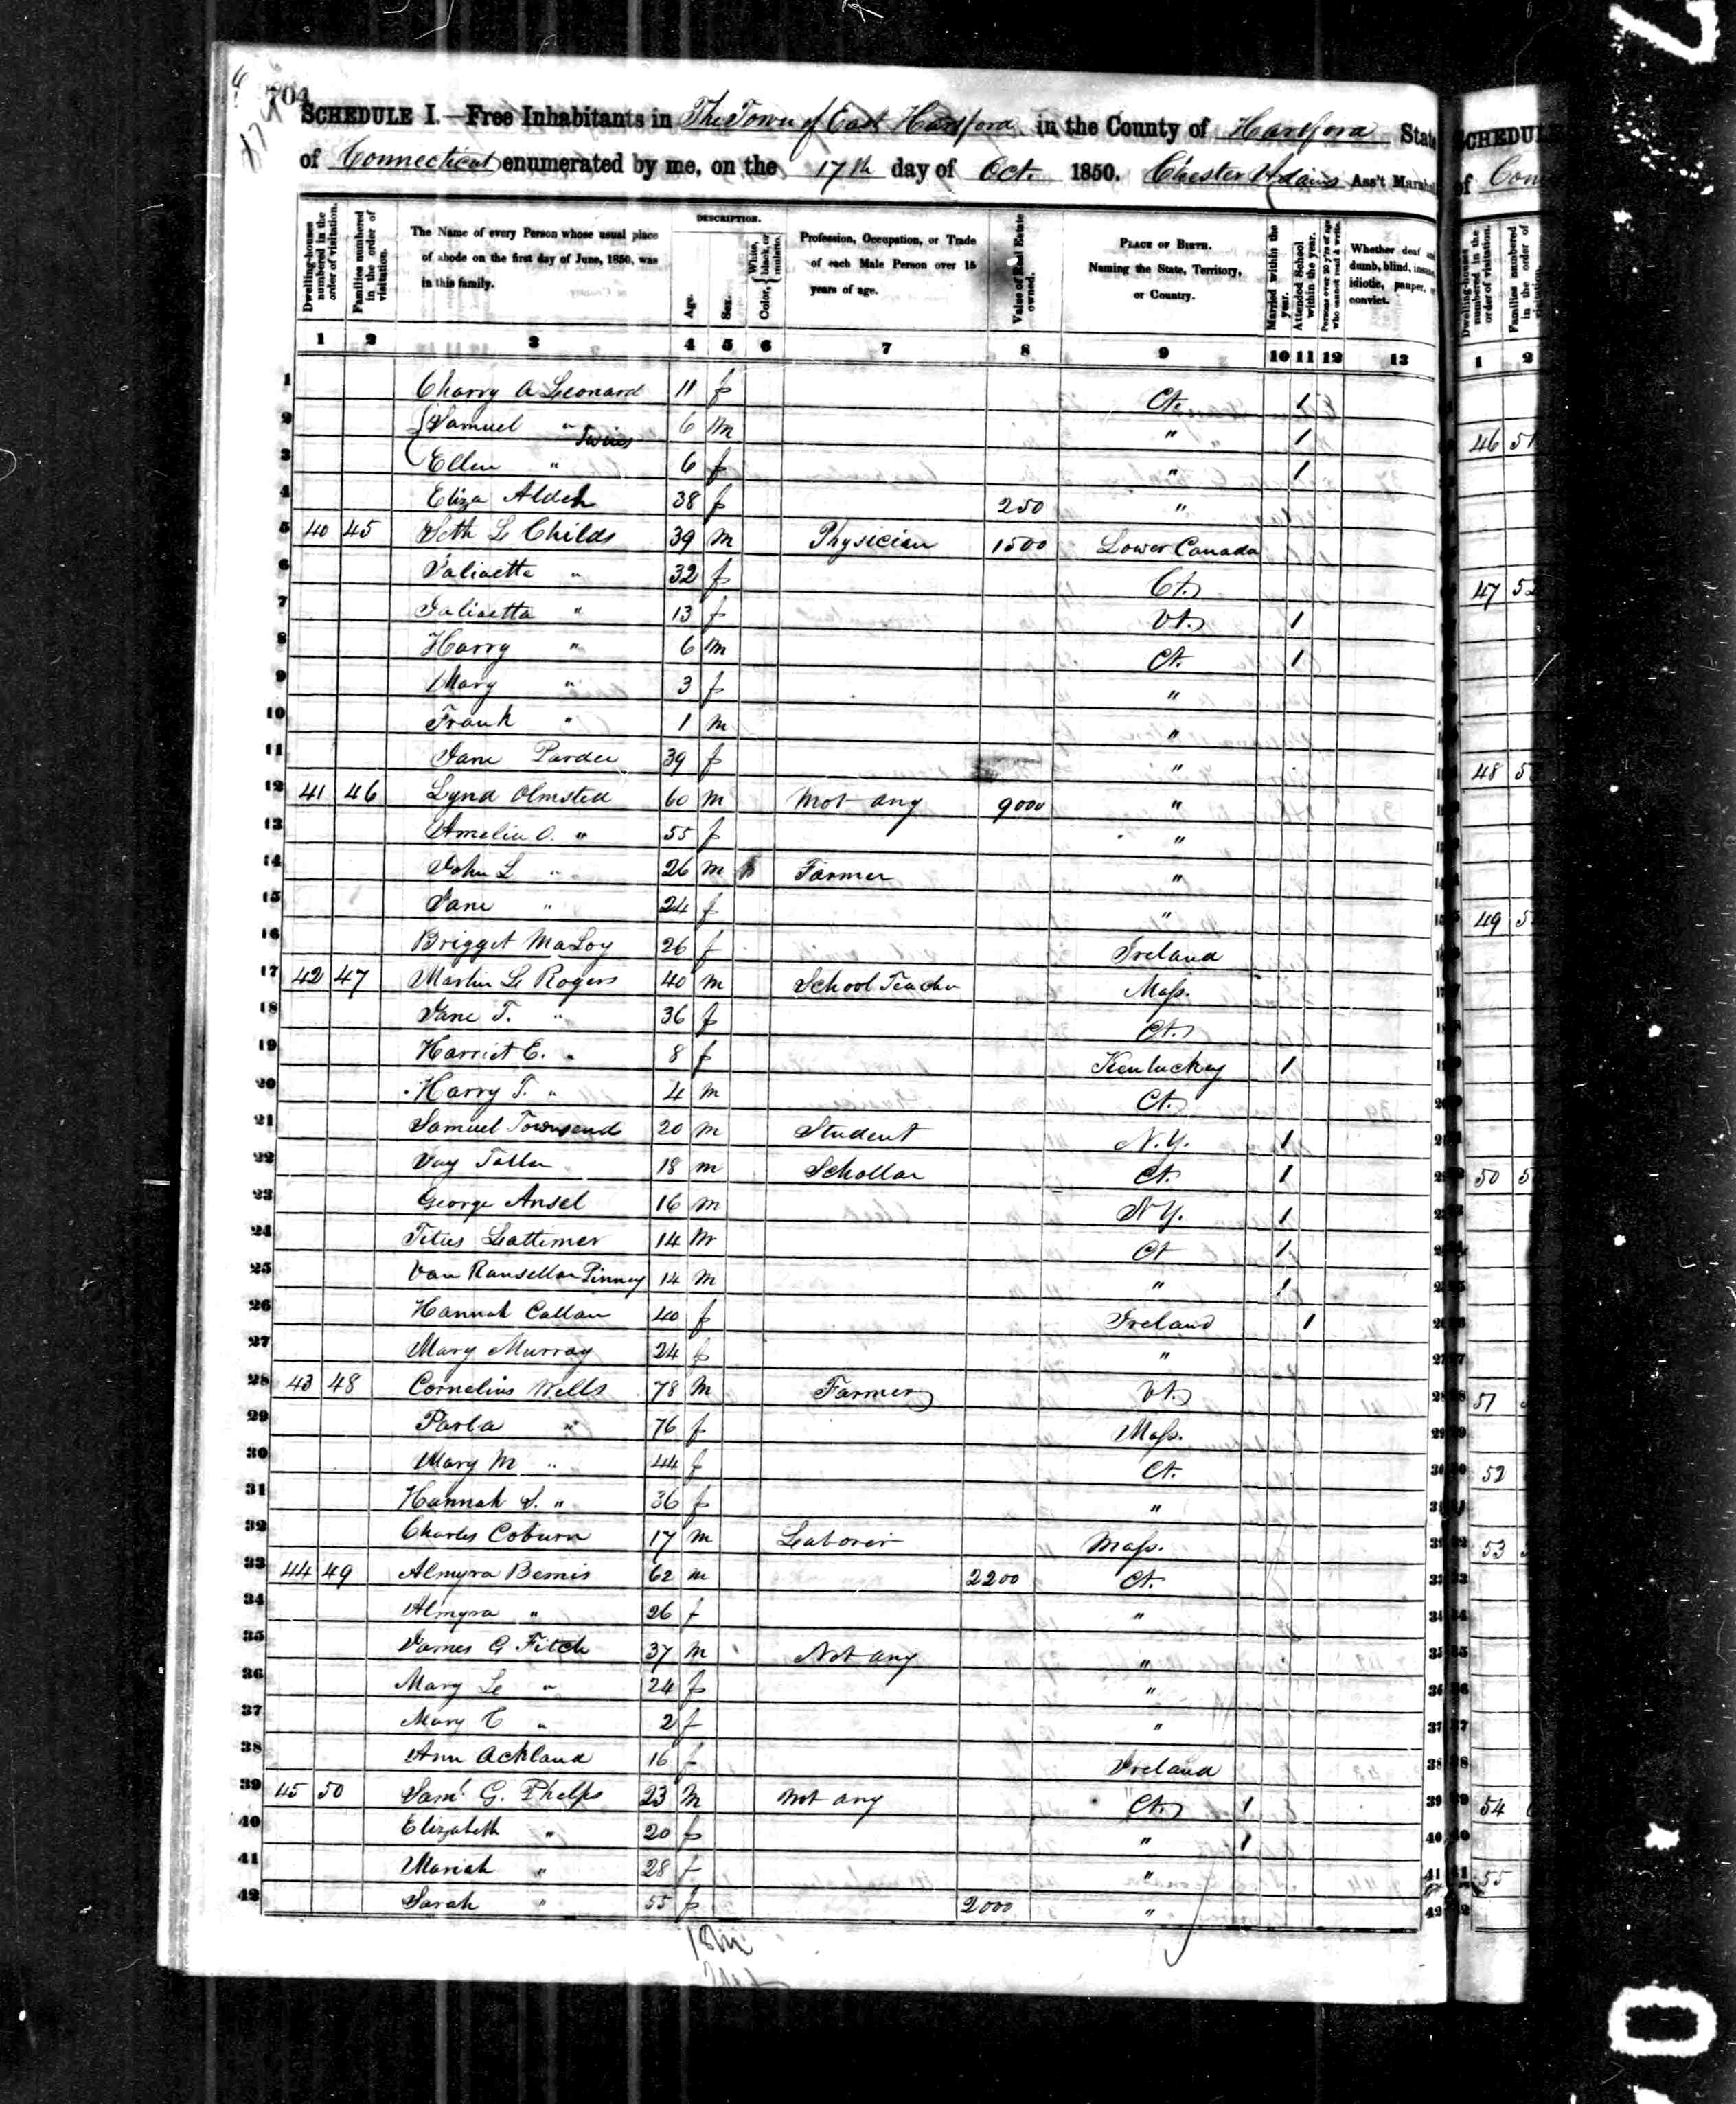 704
SCHEDULE I.—Free Inhabitants in The Town of East Hartford in the County of Hartford State
of Connecticut enumerated by me, on the 17th day of Oct. 1850. Chester Adams Ass't Marshal
Dwelling-houses numbered in the order of visitation.
Families numbered in the order of visitation.
The Name of every Person whose usual place of abode on the first day of June, 1850, was in this family.
DESCRIPTION.
Age.
Sex.
Color, { White, black, or mulatto.
Profession, Occupation, or Trade of each Male Person over 15 years of age.
Value of Real Estate owned.
PLACE OF BIRTH. Naming the State, Territory, or Country.
Married within the year.
Attended School within the year.
Persons over 20 y'rs of age who cannot read & write.
Whether deaf and dumb, blind, insane, idiotic, pauper, or convict.
1 2 3 4 5 6 7 8 9 10 11 12 13
1 Charry A Leonard 11 f Ct. 1
2 Samuel " Twins 6 m " 1
3 Ellen " 6 f " 1
4 Eliza Alden 38 f 250 "
5 40 45 Seth L Childs 39 m Physician 1500 Lower Canada
6 Juliaette " 32 f Ct.
7 Juliaetta " 13 f Vt. 1
8 Harry " 6 m Ct. 1
9 Mary " 3 f "
10 Frank " 1 m "
11 Jane Pardee 39 f "
12 41 46 Lynd Olmsted 60 m Not any 9000 "
13 Amelia O. " 55 f "
14 John L " 26 m Farmer "
15 Jane " 24 f "
16 Brigget MaLoy 26 f Ireland
17 42 47 Martin L Rogers 40 m School Teacher Mass.
18 Jane T. " 36 f Ct.
19 Harriet E. " 8 f Kentuckey 1
20 Harry T. " 4 m Ct.
21 Samuel Townsend 20 m Student N.Y. 1
22 18 m Schollar Ct. 1
23 George Ansel 16 m N Y. 1
24 Titus Lattimer 14 m Ct 1
25 Van Ransellar Pinney 14 m " 1
26 Hannah Callan 40 f Ireland 1
27 Mary Murray 24 f "
28 43 48 Cornelius Wells 78 m Farmer Vt.
29 " 76 f Mass.
30 Mary M " 44 f Ct.
31 Hannah S. " 36 f "
32 Charles Coburn 17 m Laborer Mass.
33 44 49 Almyra Bemis 62 m 2200 Ct.
34 Almyra " 26 f "
35 James G Fitch 37 m Not any "
36 Mary L " 24 f "
37 Mary C " 2 f "
38 Ann Ackland 16 f Ireland
39 45 50 Saml G. Phelps 23 m Not any Ct. 1
40 Elizabeth " 20 f " 1
41 Mariah " 28 f "
42 Sarah " 55 f 2000 "
18m
SCHEDULE
of Conn
1 2
46 51
47 52
48 5
49 5
50 5
51
52
53
54
55